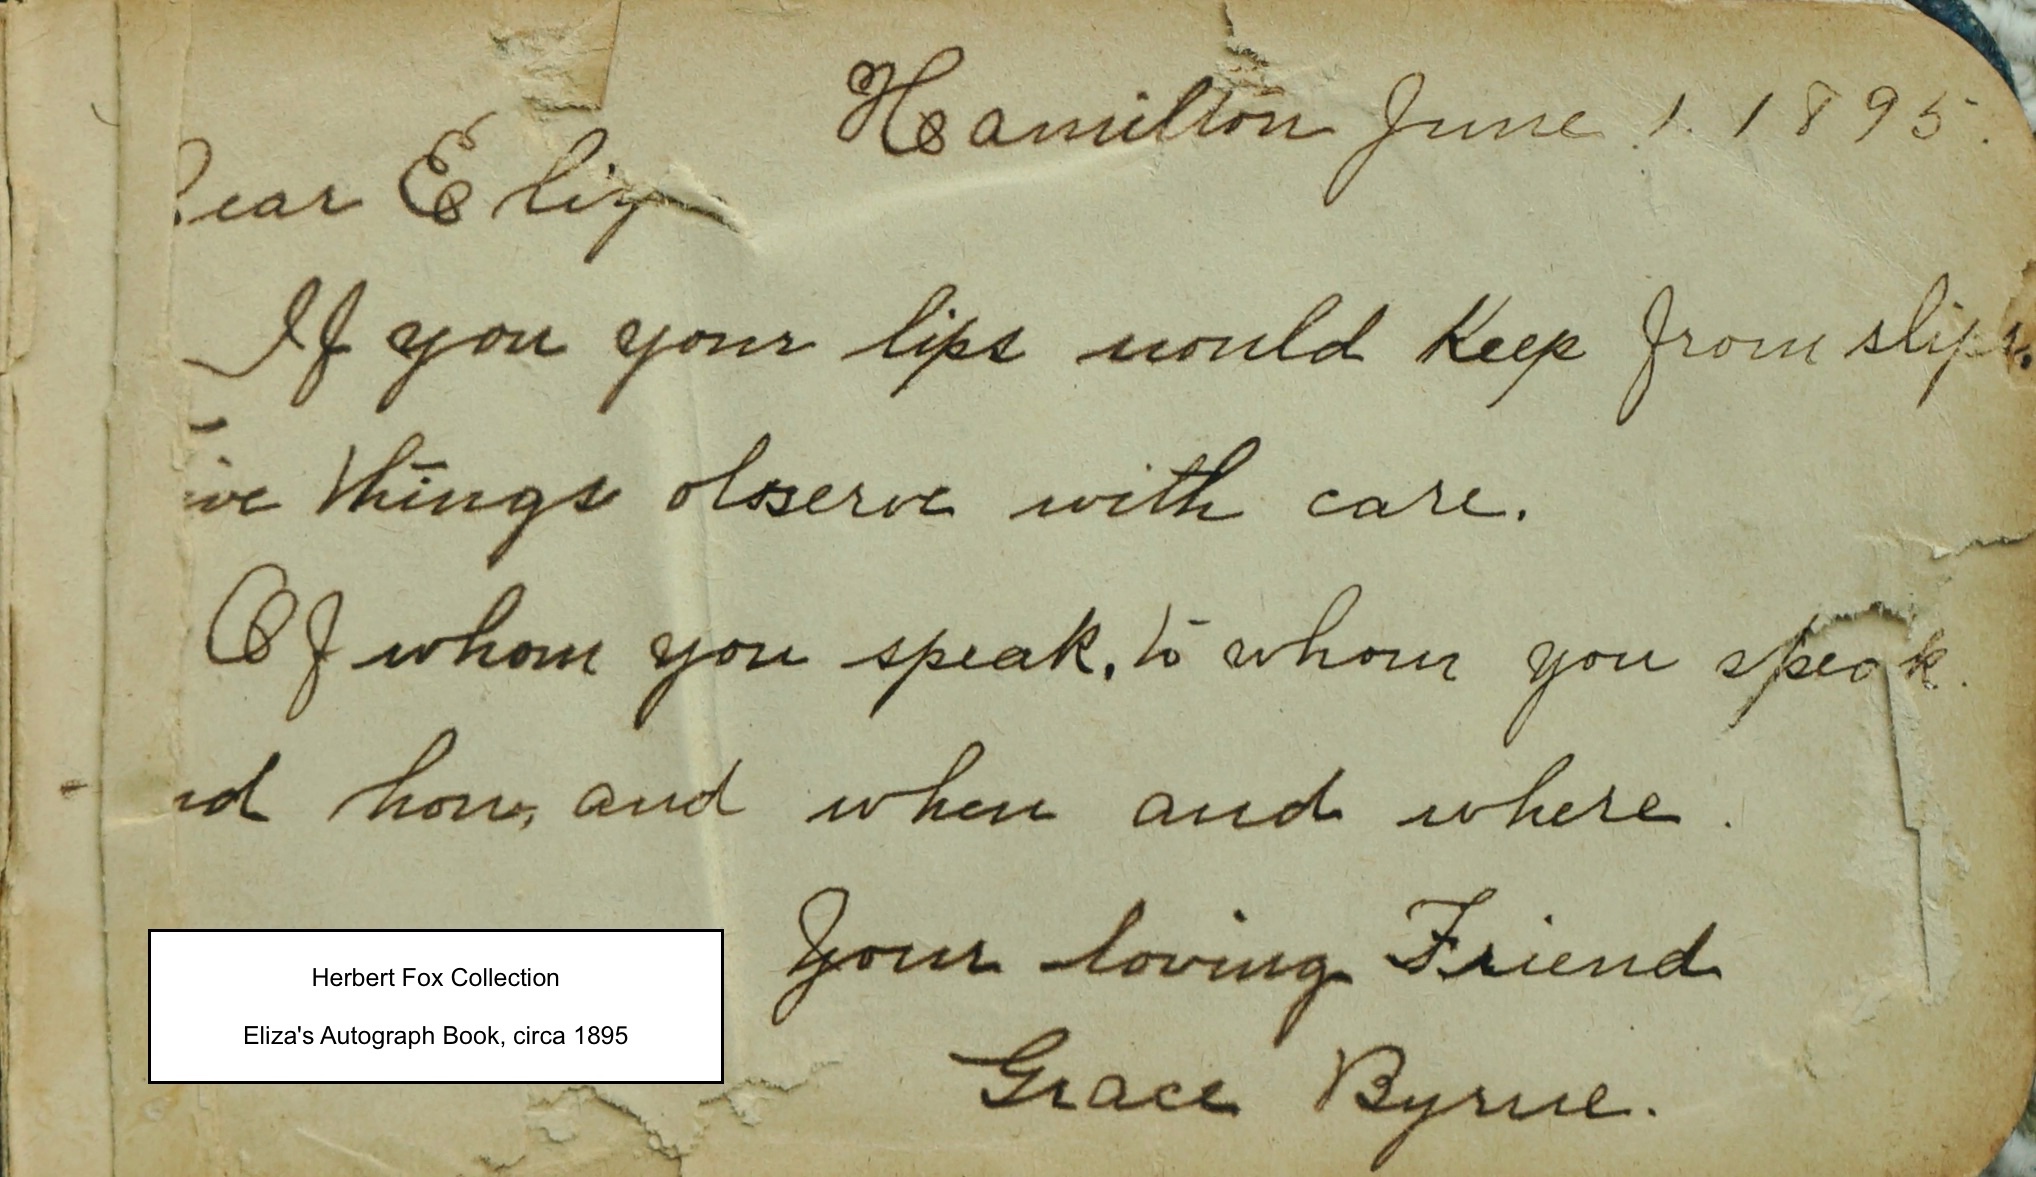 Hamilton June 1. 1895.
Dear Eliza
If you your lips would Keep from slips.
Five things observe with care.
Of whom you speak, to whom you speak.
and how, and when and where.
Your loving Friend
Grace Byrne.
Herbert Fox Collection
Eliza's Autograph Book, circa 1895